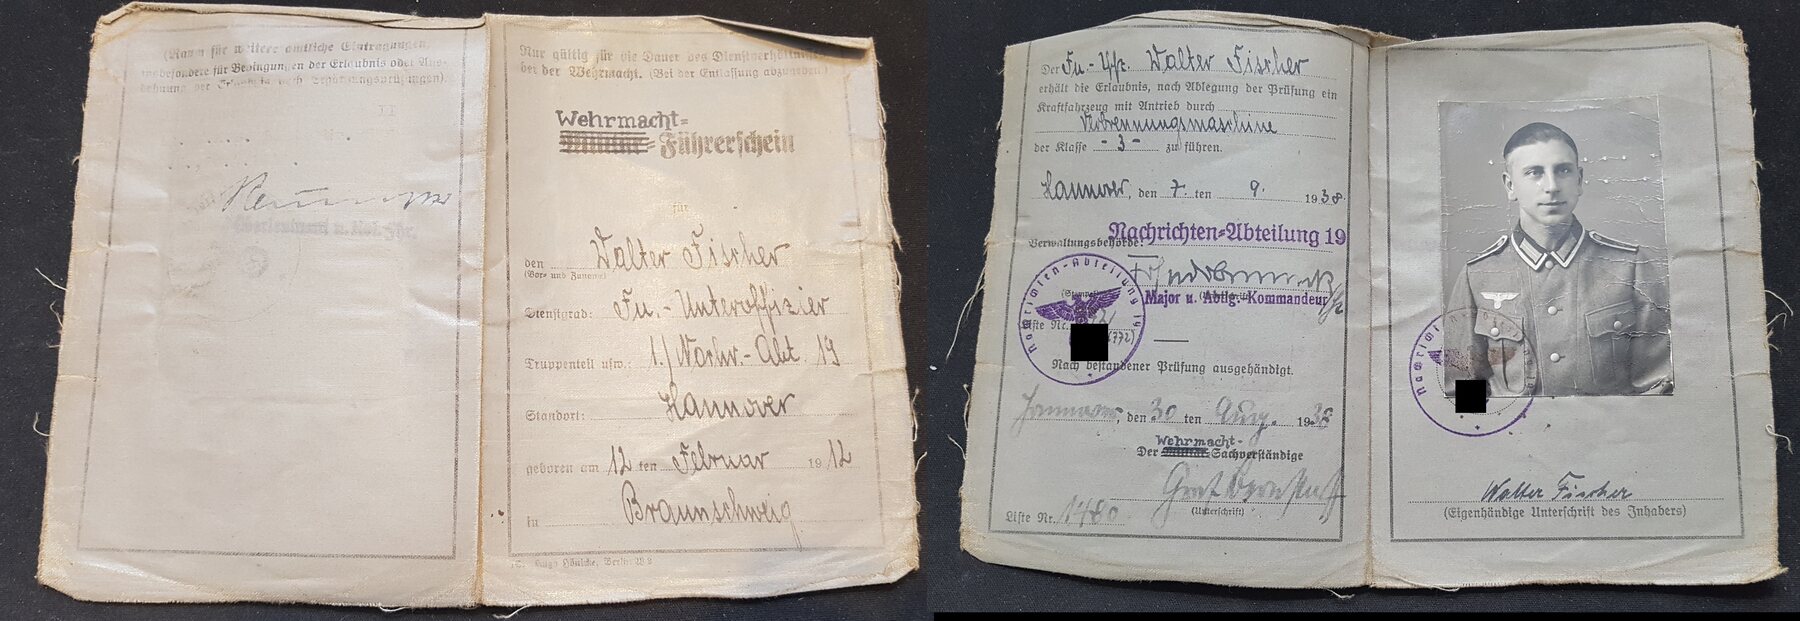 (Raum für weitere amtliche Eintragungen,
insbesondere für Bedingungen der Erlaubnis oder Aus-
dehnung der Erlaubnis nach Ergänzungsprüfungen).
Nur gültig für die Dauer des Dienstverhältnisses
bei der Wehrmacht. (Bei der Entlassung abzugeben.)
Wehrmacht=
Führerschein
für
den Walter Fischer
(Vor- und Zuname)
Dienstgrad: Fu.-Unteroffizier
Truppenteil usw.: 1./Nachr.-Abt. 19
Standort: Hannover
geboren am 12 ten Februar 1912
in Braunschweig
Berlin W 2
Der Fu.-Uffz. Walter Fischer
erhält die Erlaubnis, nach Ablegung der Prüfung ein
Kraftfahrzeug mit Antrieb durch
Verbrennungsmaschine
der Klasse - 3 - zu führen.
Hannover, den 7. ten 9. 1938
Nachrichten=Abteilung 19
Verwaltungsbehörde:
Nachrichten-Abteilung 19
(Stempel)
Major u. Abtlg.-Kommandeur
Liste Nr.
Nach bestandener Prüfung ausgehändigt.
Hannover, den 30 ten Aug. 1938
Wehrmacht-
Der Sachverständige
(Unterschrift)
Liste Nr. 1480
Nachrichten-Abteilung 19
Walter Fischer
(Eigenhändige Unterschrift des Inhabers)